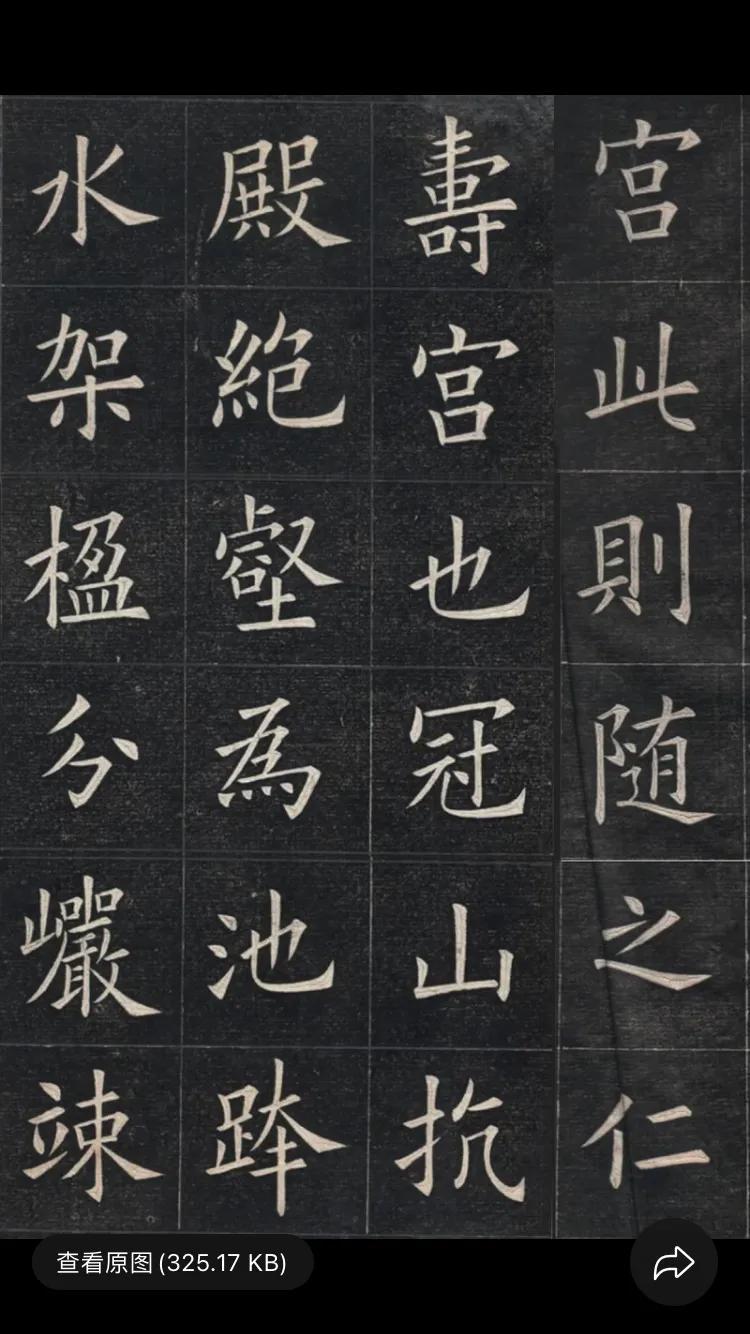 宫此則随之仁
壽宫也冠山抗
殿絶壑為池跨
水架楹分巗竦
查看原图(325.17 KB)